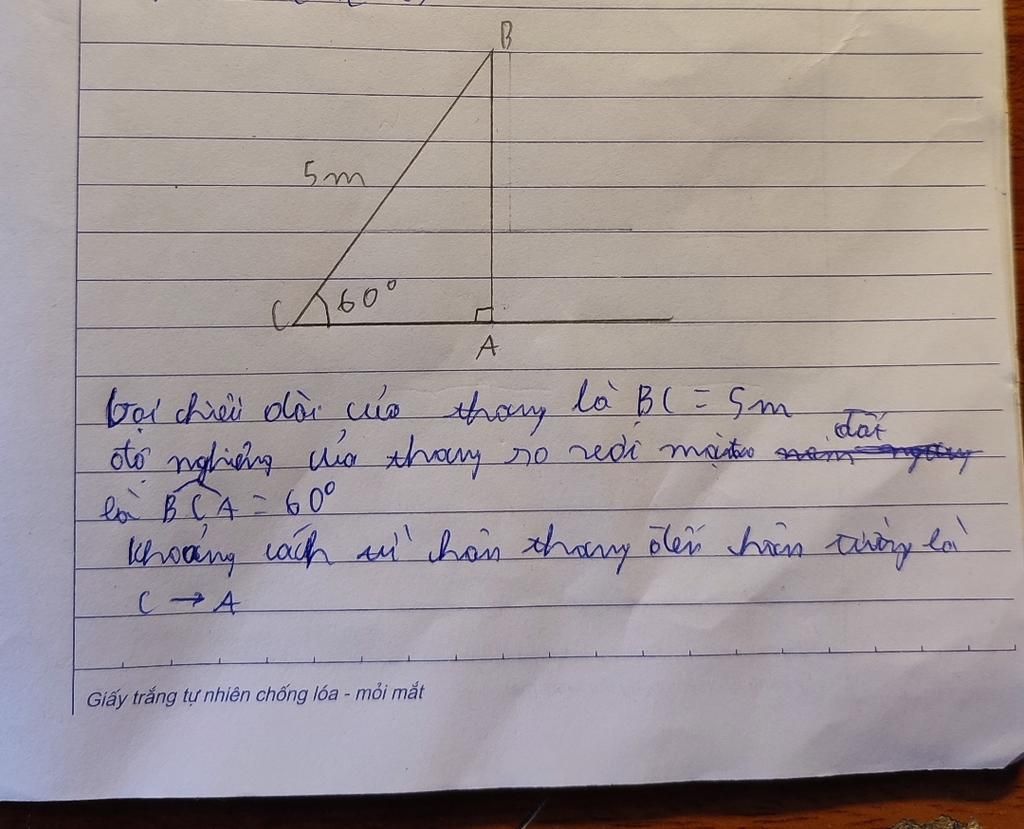 B
5m
C 60°
A
Gọi chiều dài của thang là BC = 5m
độ nghiêng của thang so với mặt đất
là BCA = 60°
Khoảng cách từ chân thang đến chân tường là
C → A
Giấy trắng tự nhiên chống lóa - mỏi mắt